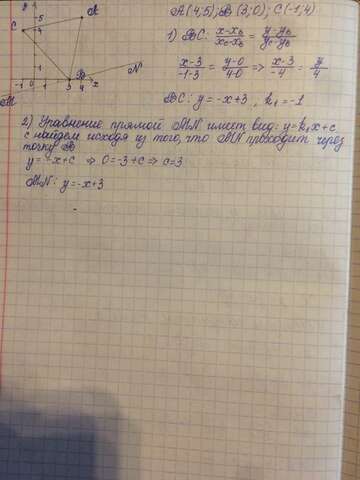 A(4,5); B(3;0); C(-1,4)
1) BC: x-x_B / x_C-x_B = y-y_B / y_C-y_B
x-3 / -1-3 = y-0 / 4-0 => x-3 / -4 = y / 4
BC: y = -x+3, k₁=-1
2) Уравнение прямой MN имеет вид: y=k₁x+c
с найдем исходя из того, что MN проходит через
точку B
y=-x+c => 0=-3+c => c=3
MN: y=-x+3
y
5
A
C
4
1
N
B
-1 0 1 3 4 x
M